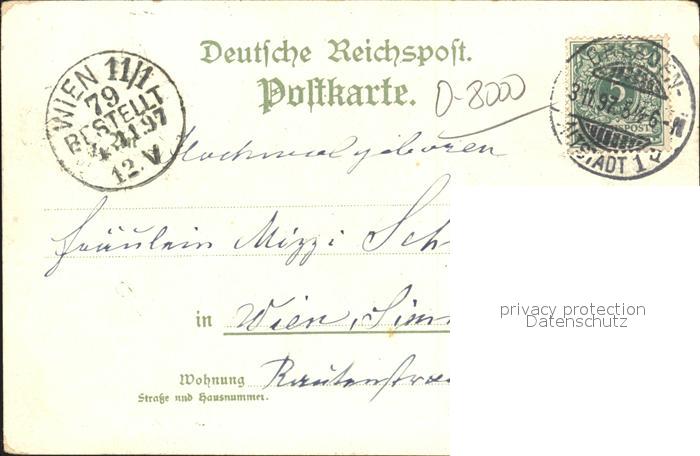 Deutsche Reichspost.
Postkarte.
D-8000
WIEN 11/1
79
BESTELLT
4.11.97
12.V
DRESDEN-
3.11.97
ALTSTADT 1
5
Hochwolgeboren
Fräulein Mizzi Sch
in Wien, Sim
Wohnung Rautenstra
Straße und Hausnummer.
privacy protection
Datenschutz